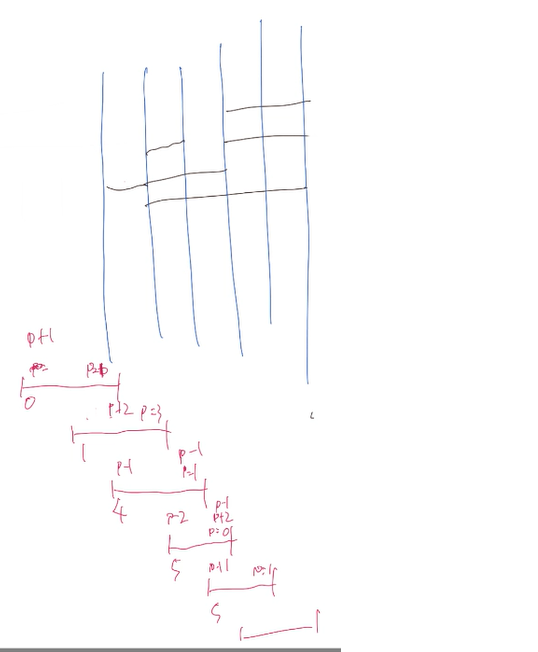 p+1
0
p+2 p=3
1
p-1
p-1 p=1
4
p-1
p-2 p+2
p=0
5
p+1 p=1
5